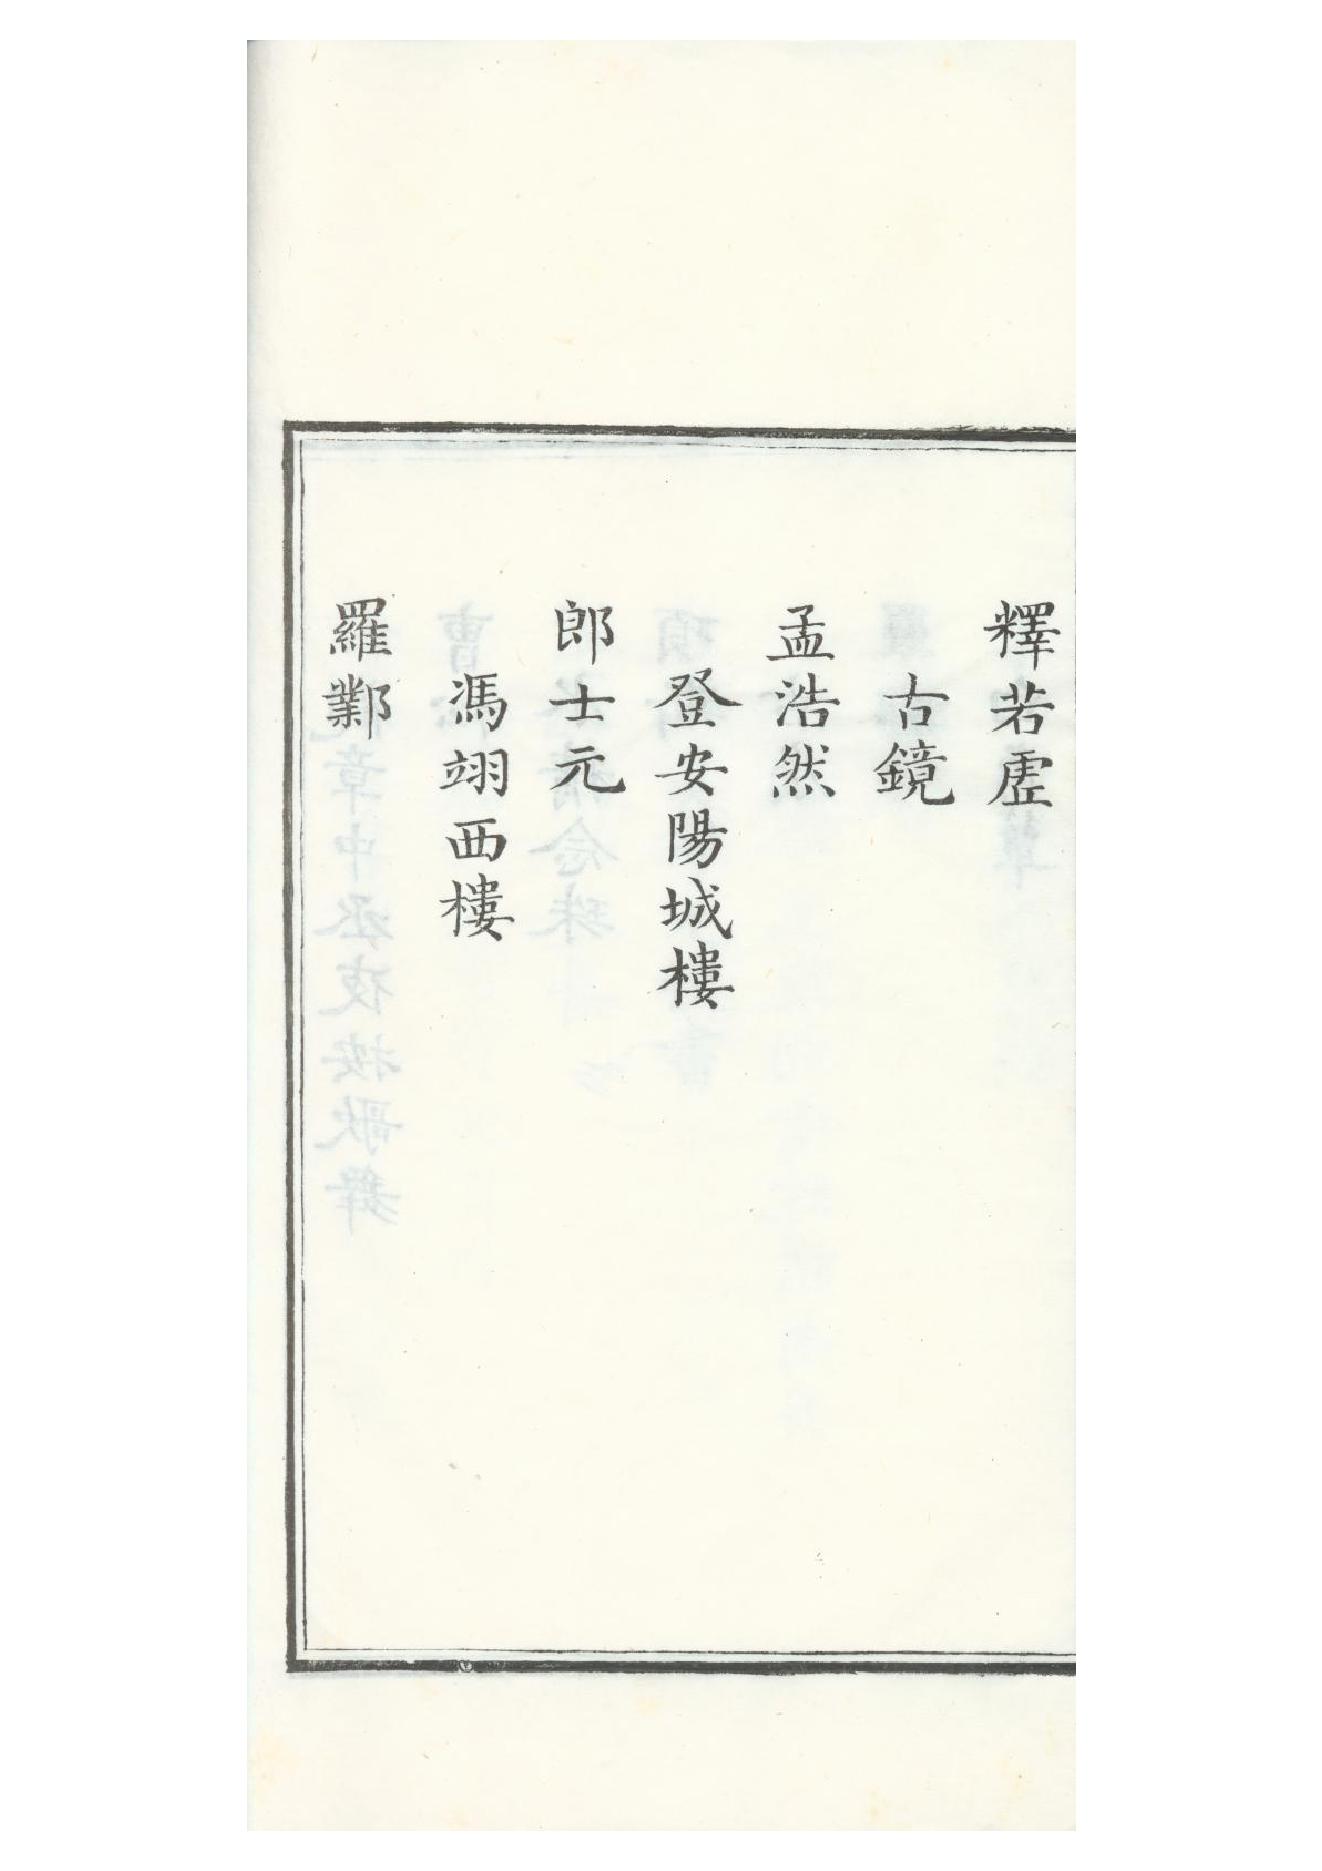 釋若虛
古鏡
孟浩然
登安陽城樓
郎士元
馮翊西樓
羅鄴